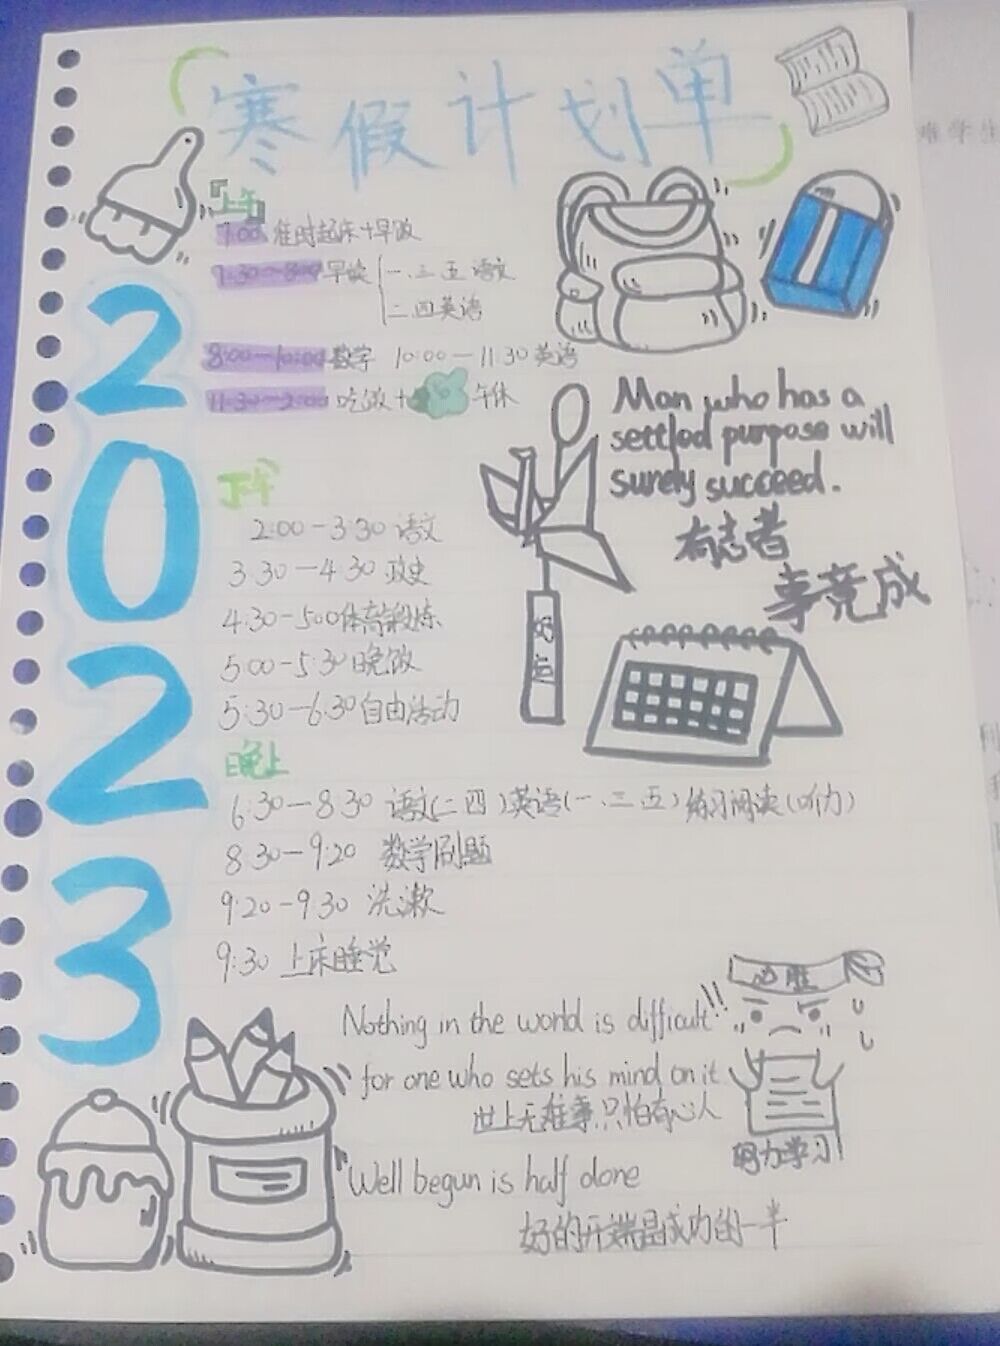 寒假计划单
上午
7:00 准时起床+早饭
7:30-8:00 早读 一、三、五 语文
二四英语
8:00-10:00 数学 10:00-11:30 英语
11:30-2:00 吃饭+ 午休
Man who has a
settled purpose will
surely succeed.
有志者
事竟成
下午
2:00-3:30 语文
3:30-4:30 政史
4:30-5:00 体育锻炼
5:00-5:30 晚饭
5:30-6:30 自由活动
晚上
6:30-8:30 语文(二 四)英语(一、三 五)练习阅读(听力)
8:30-9:20 数学刷题
9:20-9:30 洗漱
9:30 上床睡觉
2023
必胜
Nothing in the world is difficult
for one who sets his mind on it
世上无难事,只怕有心人
努力学习
Well begun is half done
好的开端是成功的一半